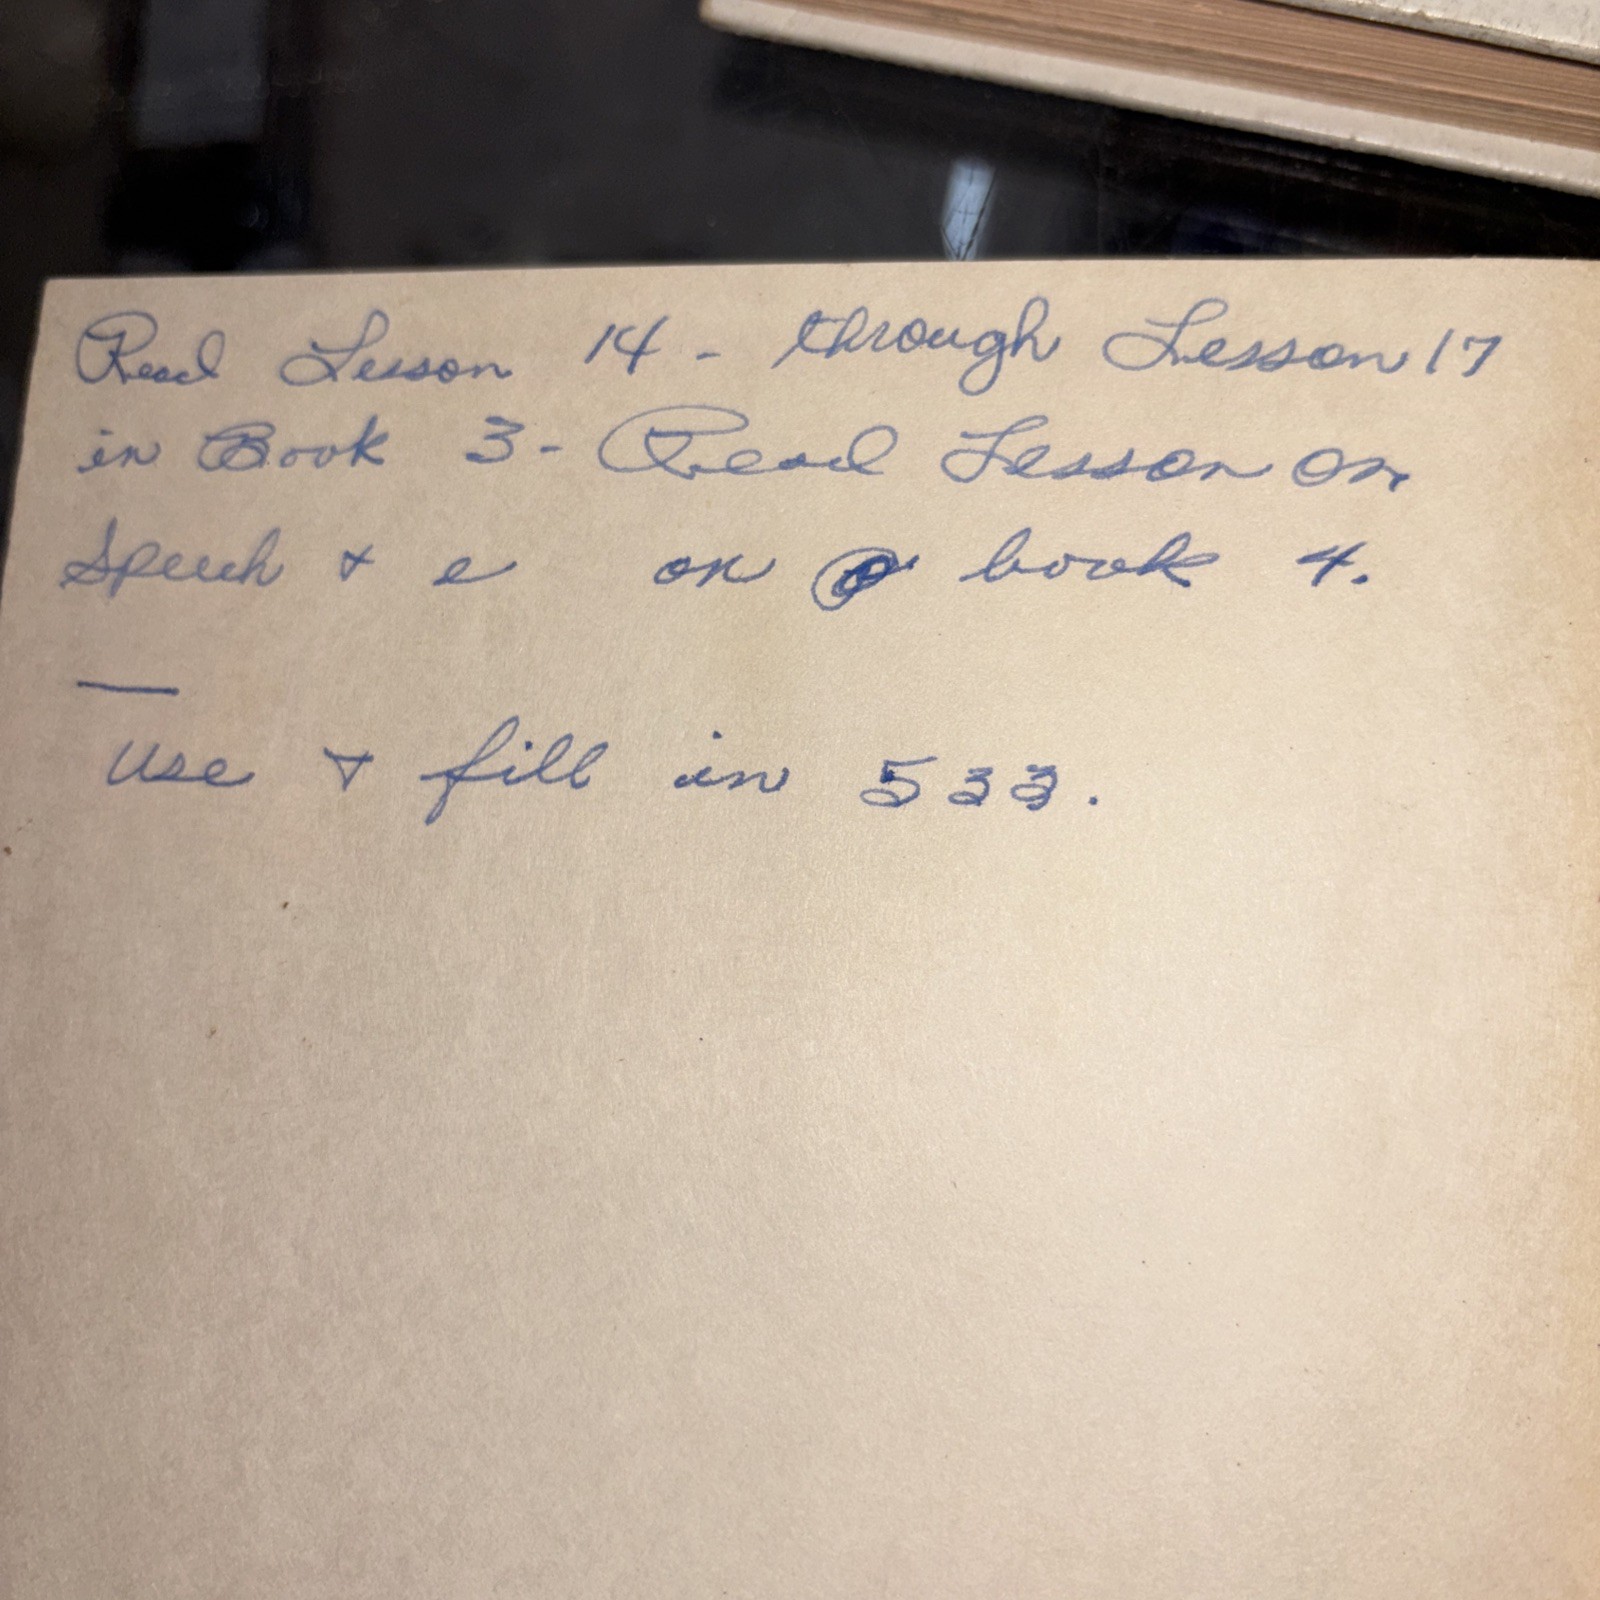 Read Lesson 14 - through Lesson 17
in Book 3 - Read Lesson on
Speech & e on book 4.
—
use & fill in 533.